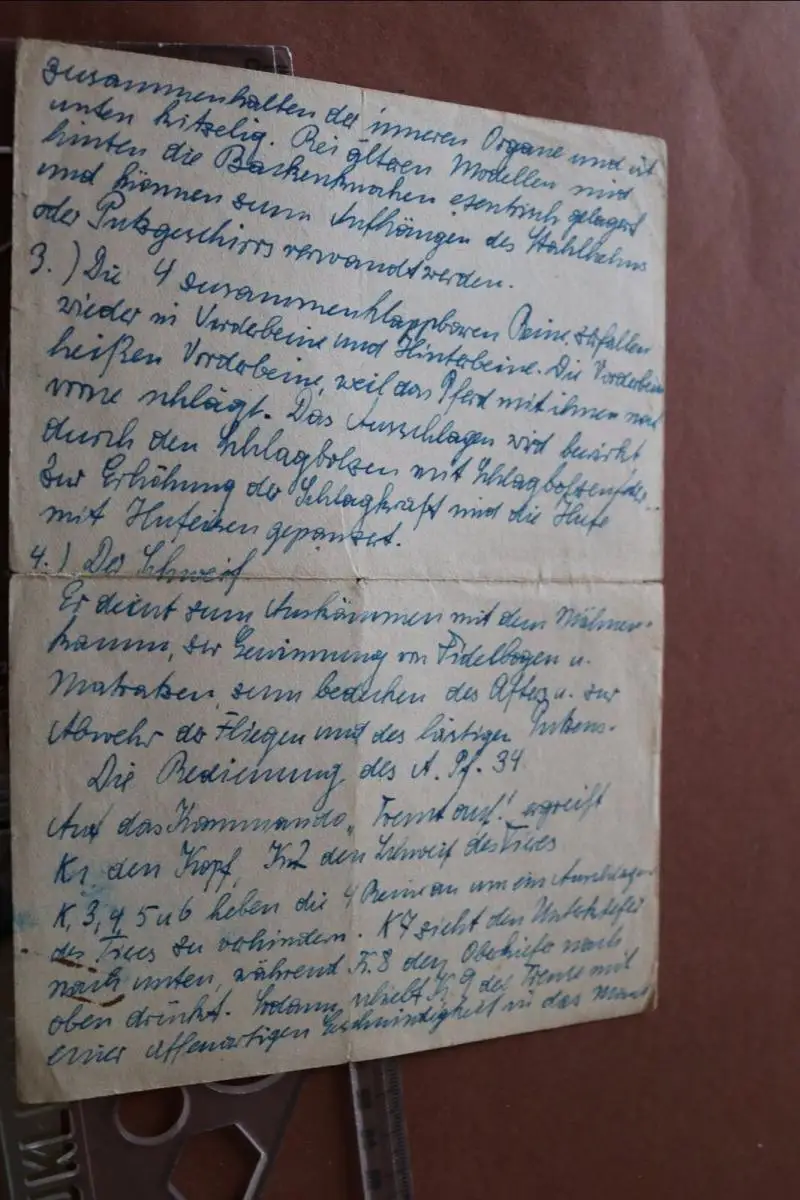 zusammenhalten der inneren Organe und ist
unten kitzelig. Bei älteren Modellen sind
hinten die Backenknochen exentrisch gelagert
und können zum Aufhängen des Stahlhelms
oder Putzgeschirrs verwandt werden.
3.) Die 4 zusammenklappbaren Beine. zerfallen
wieder in Vorderbeine und Hinterbeine. Die Vorderbeine
heißen Vorderbeine, weil das Pferd mit ihnen nach
vorne schlägt. Das Ausschlagen wird bewirkt
durch den Schlagbolzen mit Schlagbolzenfeder.
Zur Erhöhung der Schlagkraft sind die Hufe
mit Hufeisen gepanzert.
4.) Der Schweif
Er dient zum Auskämmen mit dem Mähnen-
kamm, zur Gewinnung von Fidelbogen u.
Matratzen, zum bedecken des Afters u. zur
Abwehr der Fliegen und des lästigen Juckens.
Die Bedienung des A. Pf. 34
Auf das Kommando „Trenst auf!" ergreift
K1 den Kopf, K2 den Schweif des Tieres
K, 3, 4, 5 u 6 heben die 4 Beine an um ein Ausschlagen
des Tieres zu verhindern. K7 zieht den Unterkiefer
nach unten, während K. 8 den Oberkiefer nach
oben drückt. Sodann schiebt K. 9 die Trense mit
einer affenartigen Geschwindigkeit in das Maul